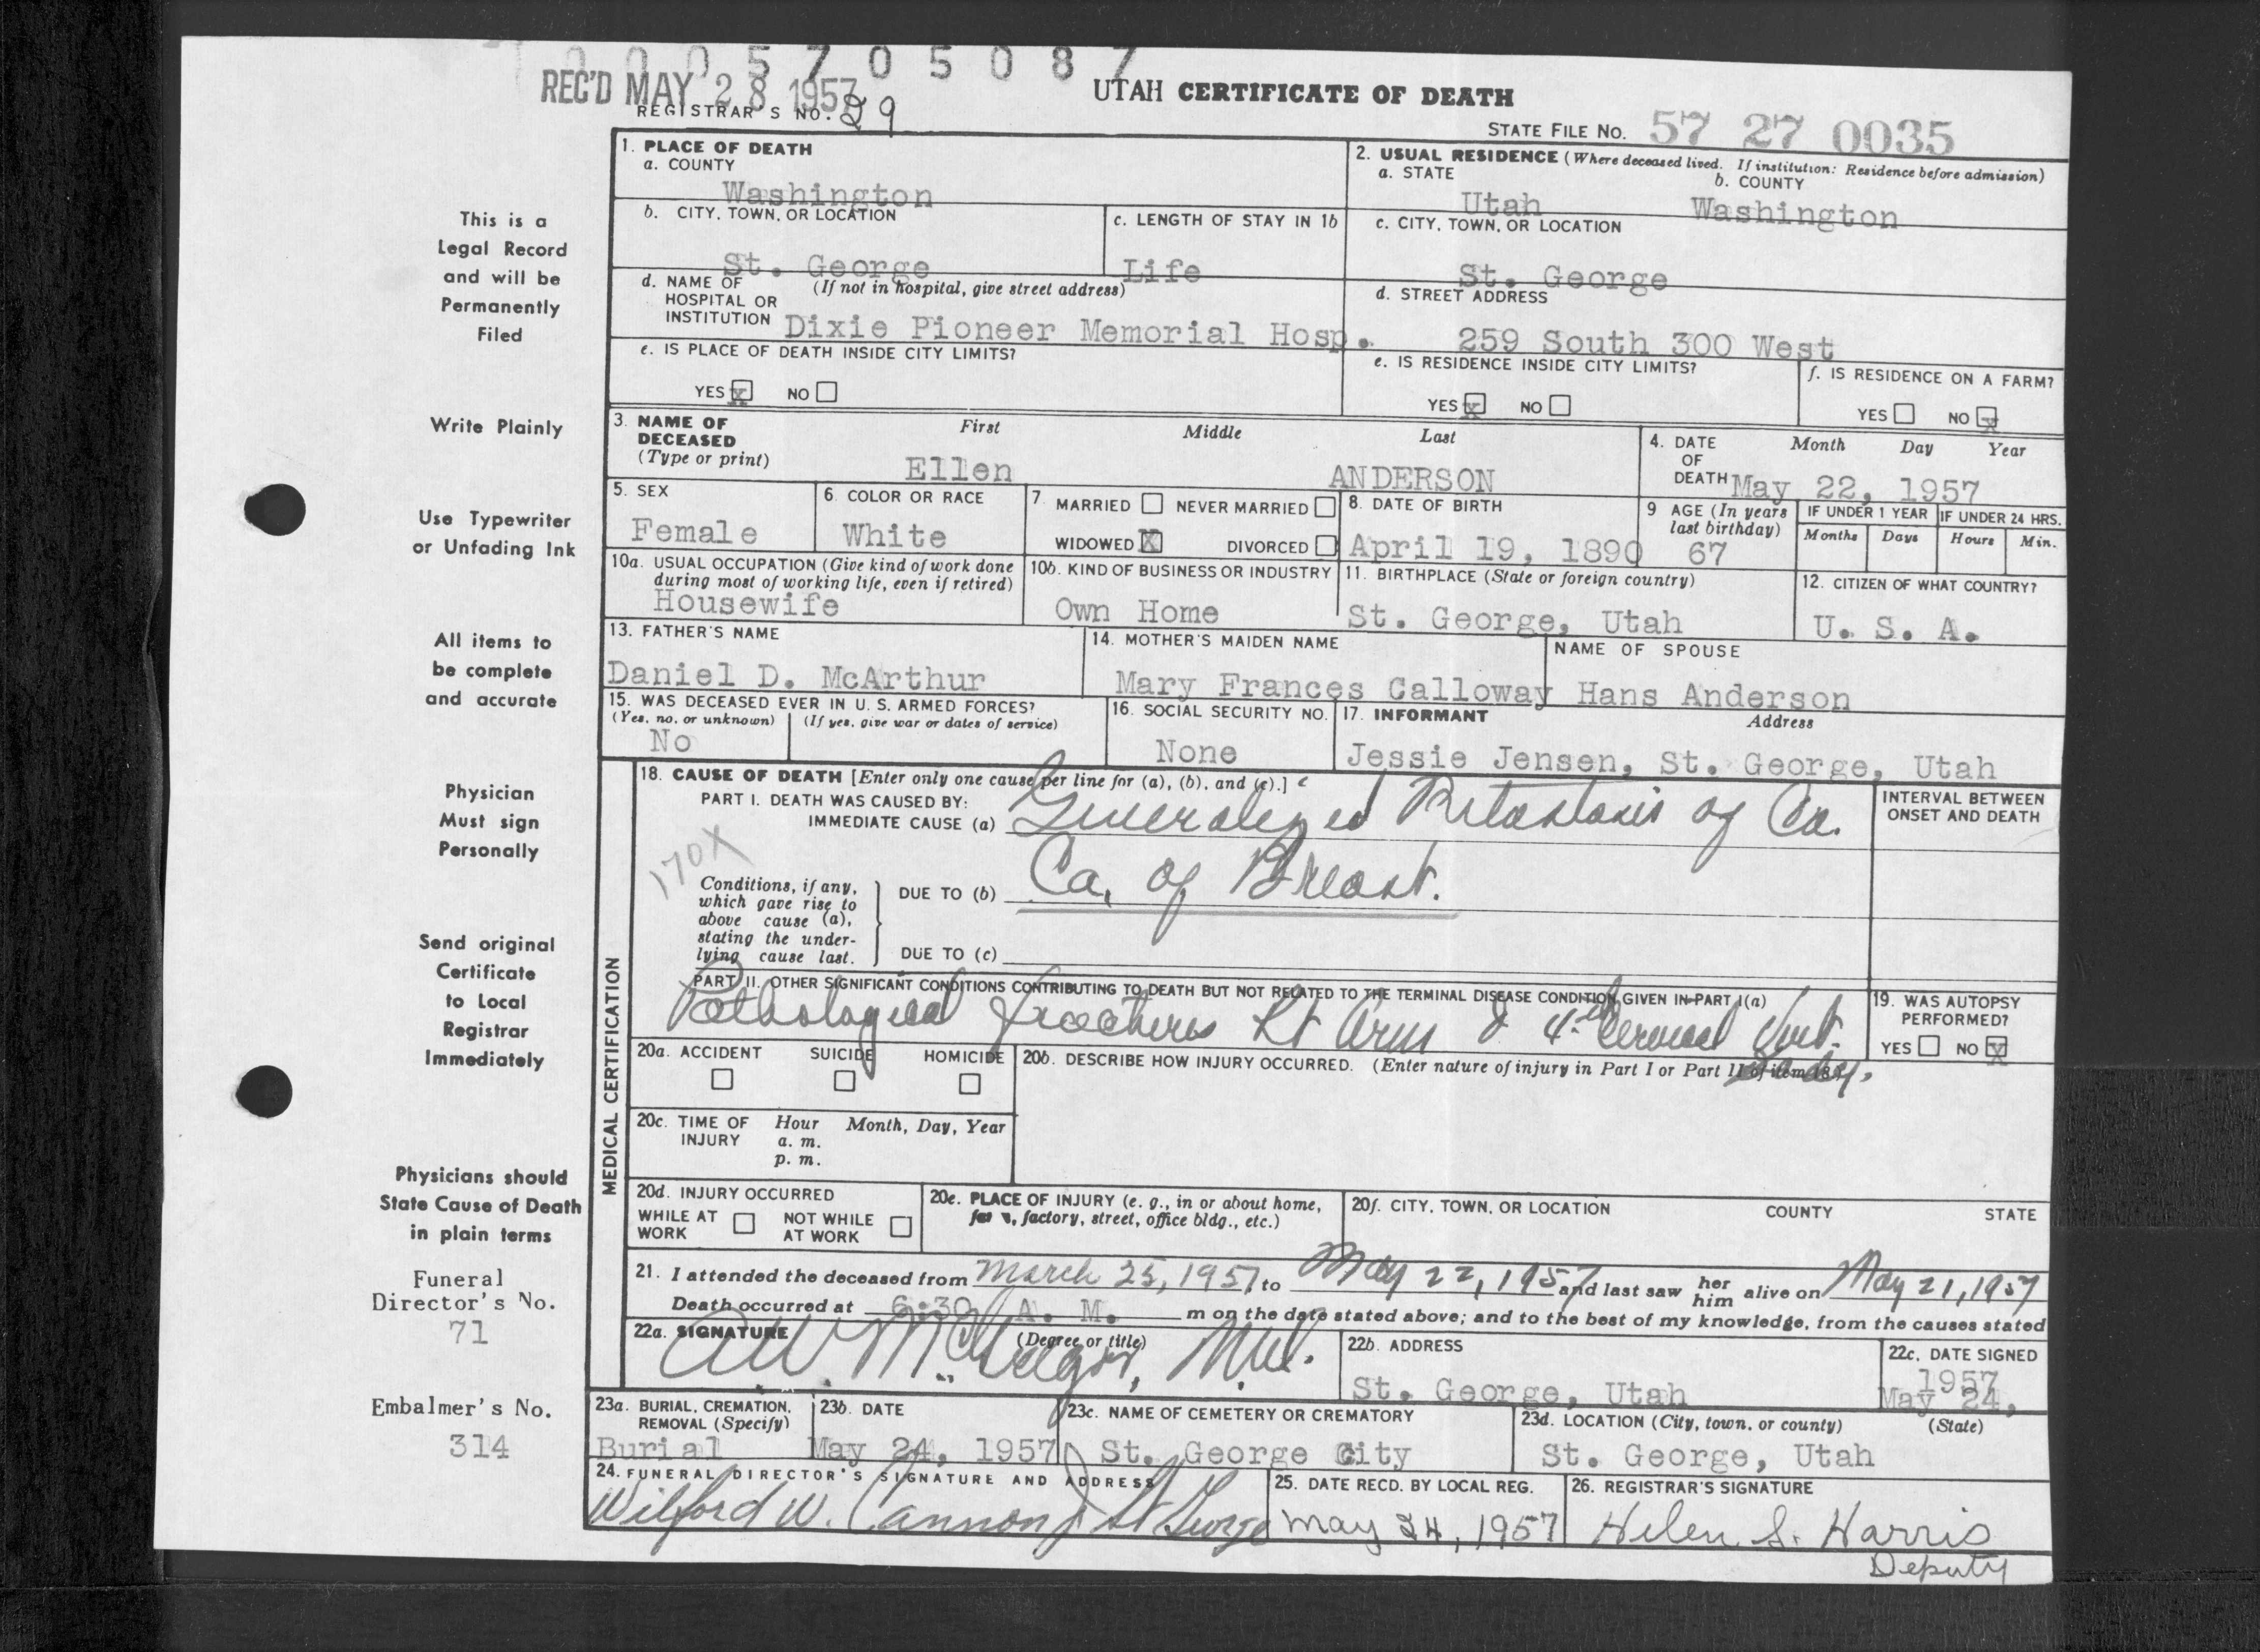 0005705087
REC'D MAY 28 1957
UTAH CERTIFICATE OF DEATH
REGISTRAR'S NO. 29
STATE FILE NO. 57 27 0035
This is a
Legal Record
and will be
Permanently
Filed
Write Plainly
Use Typewriter
or Unfading Ink
All items to
be complete
and accurate
Physician
Must sign
Personally
Send original
Certificate
to Local
Registrar
Immediately
Physicians should
State Cause of Death
in plain terms
Funeral
Director's No.
71
Embalmer's No.
314
1. PLACE OF DEATH
a. COUNTY
Washington
2. USUAL RESIDENCE (Where deceased lived. If institution: Residence before admission)
a. STATE
b. COUNTY
Utah Washington
b. CITY, TOWN, OR LOCATION
St. George
c. LENGTH OF STAY IN 1b
Life
c. CITY, TOWN, OR LOCATION
St. George
d. NAME OF (If not in hospital, give street address)
HOSPITAL OR
INSTITUTION Dixie Pioneer Memorial Hosp.
d. STREET ADDRESS
259 South 300 West
e. IS PLACE OF DEATH INSIDE CITY LIMITS?
YES X NO
e. IS RESIDENCE INSIDE CITY LIMITS?
YES X NO
f. IS RESIDENCE ON A FARM?
YES NO X
3. NAME OF First Middle Last
DECEASED
(Type or print)
Ellen ANDERSON
4. DATE Month Day Year
OF
DEATH May 22, 1957
5. SEX
Female
6. COLOR OR RACE
White
7. MARRIED NEVER MARRIED
WIDOWED X DIVORCED
8. DATE OF BIRTH
April 19, 1890
9 AGE (In years
last birthday)
67
IF UNDER 1 YEAR IF UNDER 24 HRS.
Months Days Hours Min.
10a. USUAL OCCUPATION (Give kind of work done
during most of working life, even if retired)
Housewife
10b. KIND OF BUSINESS OR INDUSTRY
Own Home
11. BIRTHPLACE (State or foreign country)
St. George, Utah
12. CITIZEN OF WHAT COUNTRY?
U. S. A.
13. FATHER'S NAME
Daniel D. McArthur
14. MOTHER'S MAIDEN NAME
Mary Frances Calloway
NAME OF SPOUSE
Hans Anderson
15. WAS DECEASED EVER IN U. S. ARMED FORCES?
(Yes, no, or unknown) (If yes, give war or dates of service)
No
16. SOCIAL SECURITY NO.
None
17. INFORMANT Address
Jessie Jensen, St. George, Utah
MEDICAL CERTIFICATION
18. CAUSE OF DEATH [Enter only one cause per line for (a), (b), and (c).]
PART I. DEATH WAS CAUSED BY:
IMMEDIATE CAUSE (a) Generalized Metastasis of Ca.
INTERVAL BETWEEN
ONSET AND DEATH
170X
Conditions, if any,
which gave rise to
above cause (a),
stating the under-
lying cause last.
DUE TO (b) Ca. of Breast.
DUE TO (c)
PART II. OTHER SIGNIFICANT CONDITIONS CONTRIBUTING TO DEATH BUT NOT RELATED TO THE TERMINAL DISEASE CONDITION GIVEN IN PART I(a)
Pathological fractures Rt Arm & 4th Cervical Vert.
Body.
19. WAS AUTOPSY
PERFORMED?
YES NO X
20a. ACCIDENT SUICIDE HOMICIDE
20b. DESCRIBE HOW INJURY OCCURRED. (Enter nature of injury in Part I or Part II of item 18.)
20c. TIME OF Hour Month, Day, Year
INJURY a. m.
p. m.
20d. INJURY OCCURRED
WHILE AT NOT WHILE
WORK AT WORK
20e. PLACE OF INJURY (e. g., in or about home,
farm, factory, street, office bldg., etc.)
20f. CITY, TOWN, OR LOCATION COUNTY STATE
21. I attended the deceased from March 25, 1957, to May 22, 1957 and last saw her him alive on May 21, 1957
Death occurred at 6:30 A. M. m on the date stated above; and to the best of my knowledge, from the causes stated
22a. SIGNATURE (Degree or title)
A W McGregor, M.D.
22b. ADDRESS
St. George, Utah
22c. DATE SIGNED
1957
May 24,
23a. BURIAL, CREMATION,
REMOVAL (Specify)
Burial
23b. DATE
May 24, 1957
23c. NAME OF CEMETERY OR CREMATORY
St. George City
23d. LOCATION (City, town, or county) (State)
St. George, Utah
24. FUNERAL DIRECTOR'S SIGNATURE AND ADDRESS
Wilford W. Cannon St George
25. DATE RECD. BY LOCAL REG.
May 24, 1957
26. REGISTRAR'S SIGNATURE
Helen S. Harris
Deputy